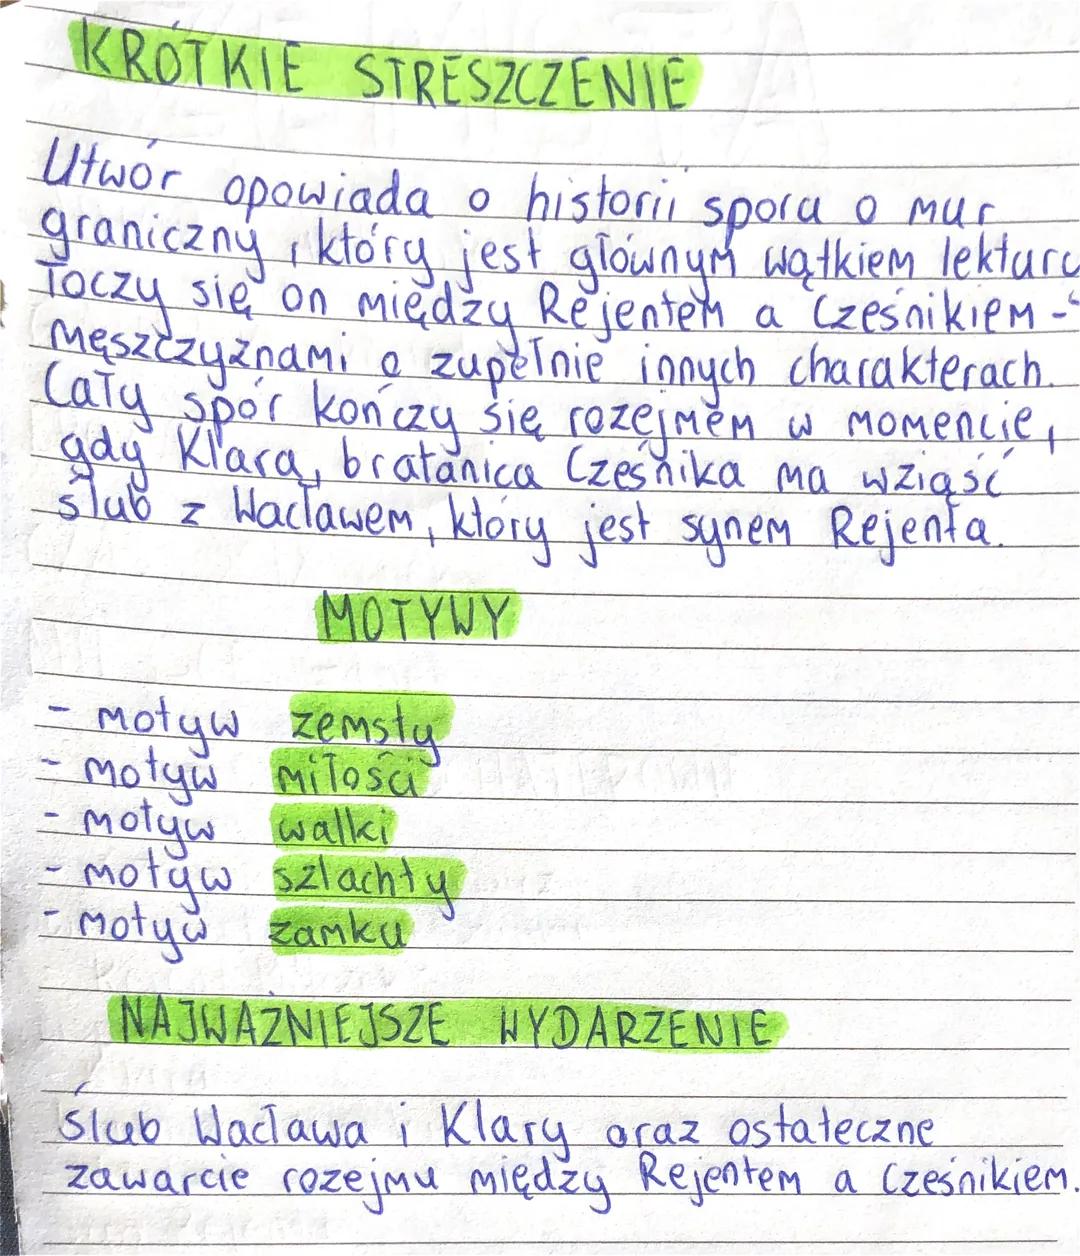 KRÓTKIE STRESZCZENIE
Utwór opowiada o historii sporu o mur
graniczny, który jest głównym wątkiem lektury
Toczy się on między Rejentem a Cześnikiem -
męszczyznami o zupełnie innych charakterach.
Cały spór kończy się rozejmem w momencie,
gdy Klara, bratanica Cześnika ma wziąść
ślub z Wacławem, który jest synem Rejenta.
MOTYWY
- motyw zemsty
- motyw miłości
- motyw walki
- motyw szlachty
- motyw zamku
NAJWAŻNIEJSZE WYDARZENIE
Ślub Wacława i Klary oraz ostateczne
zawarcie rozejmu między Rejentem a Cześnikiem.